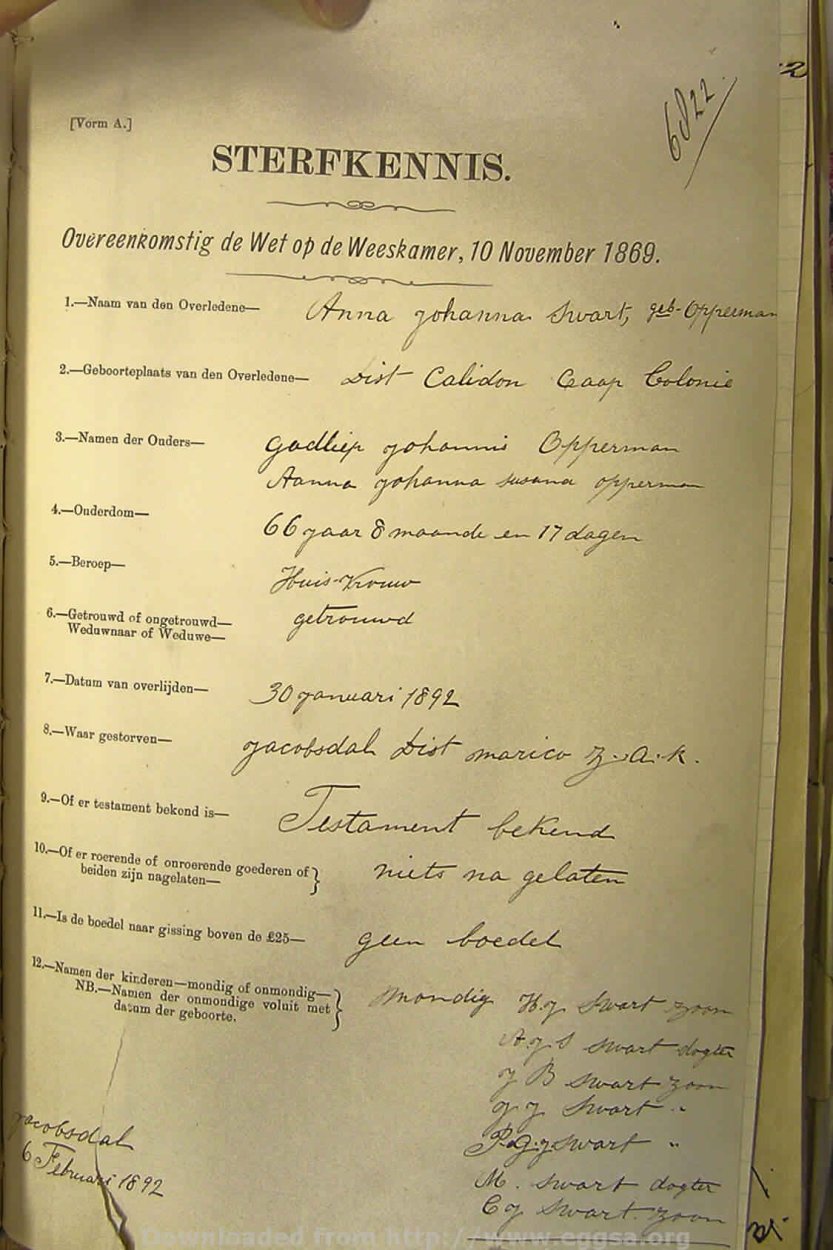 6822
[Vorm A.]
STERFKENNIS.
Overeenkomstig de Wet op de Weeskamer, 10 November 1869.
1.—Naam van den Overledene— Anna Johanna Swart, geb. Opperman
2.—Geboorteplaats van den Overledene— Dist Calidon Caap Colonie
3.—Namen der Ouders— Godliep Johannis Opperman
Aanna Johanna Susana Opperman
4.—Ouderdom— 66 jaar 8 maande en 17 dagen
5.—Beroep— Huis-Vrouw
6.—Getrouwd of ongetrouwd— getrouwd
Weduwnaar of Weduwe—
7.—Datum van overlijden— 30 Januari 1892
8.—Waar gestorven— Jacobsdal Dist Marico Z.A.R.
9.—Of er testament bekend is— Testament bekend
10.—Of er roerende of onroerende goederen of } niets na gelaten
beiden zijn nagelaten—
11.—Is de boedel naar gissing boven de £25— geen boedel
12.—Namen der kinderen—mondig of onmondig— } Mondig H.J. Swart zoon
NB.—Namen der onmondige voluit met
datum der geboorte.
A.J.S Swart dogter
J B Swart zoon
J.J. Swart "
P.G.J. Swart "
M. Swart dogter
C J Swart. zoon
Jacobsdal
6 Februari 1892
Downloaded from http://www.eggsa.org